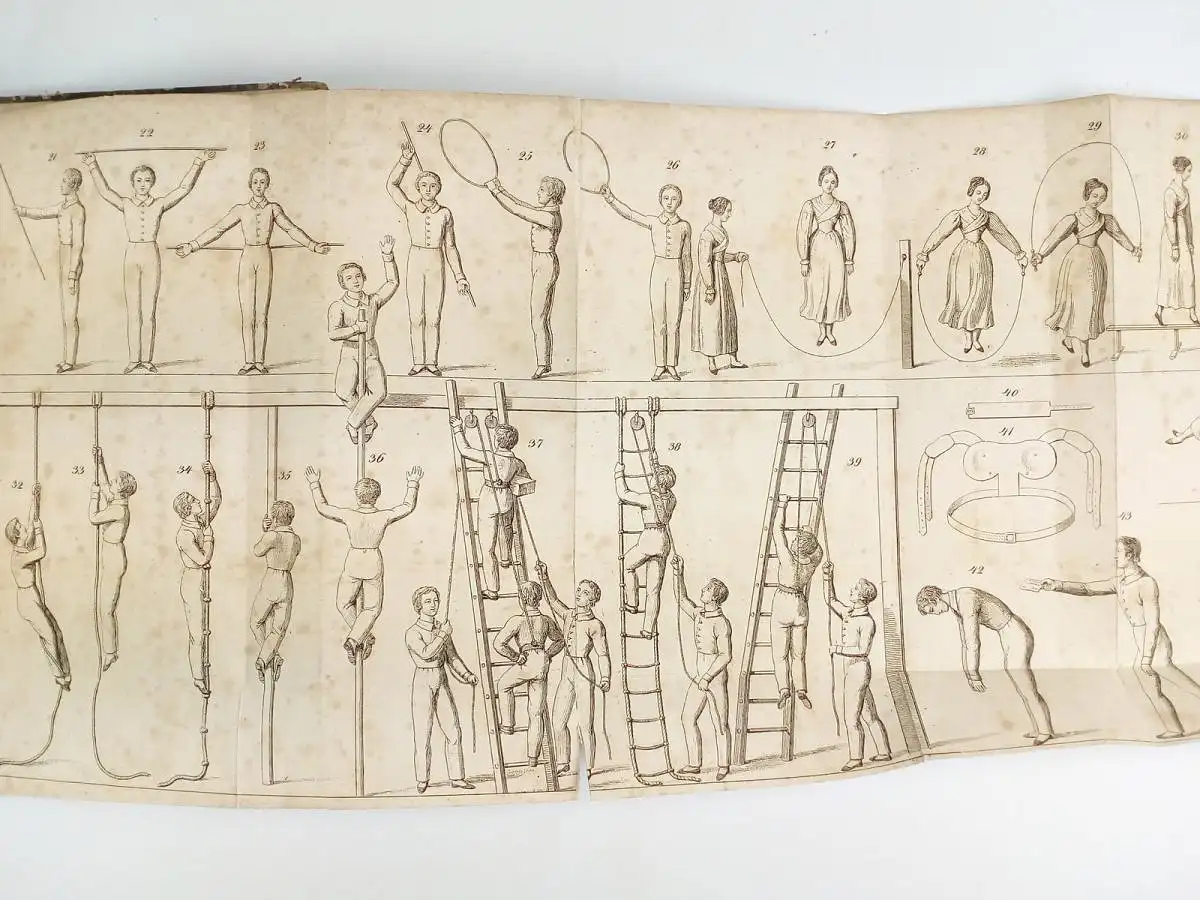 21
22
23
24
25
26
27
28
29
30
32
33
34
35
36
37
38
39
40
41
42
43